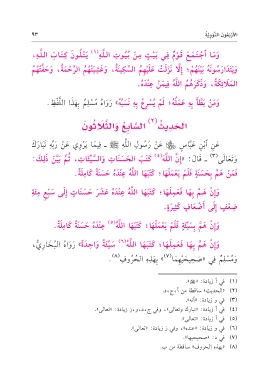 الأَرْبَعُونَ النَّوَوِيَّة
٩٣
وَمَا اجْتَمَعَ قَوْمٌ فِي بَيْتٍ مِنْ بُيُوتِ اللَّهِ(١) يَتْلُونَ كِتَابَ اللَّهِ،
وَيَتَدَارَسُونَهُ بَيْنَهُمْ؛ إِلَّا نَزَلَتْ عَلَيْهِمُ السَّكِينَةُ، وَغَشِيَتْهُمُ الرَّحْمَةُ، وَحَفَّتْهُمُ
المَلَائِكَةُ، وَذَكَرَهُمُ اللَّهُ فِيمَنْ عِنْدَهُ.
وَمَنْ بَطَّأَ بِهِ عَمَلُهُ؛ لَمْ يُسْرِعْ بِهِ نَسَبُهُ» رَوَاهُ مُسْلِمٌ بِهَذَا اللَّفْظِ.
الحَدِيثُ(٢) السَّابِعُ وَالثَّلَاثُونَ
عَنِ ابْنِ عَبَّاسٍ ﵄ عَنْ رَسُولِ اللَّهِ ﷺ - فِيمَا يَرْوِي عَنْ رَبِّهِ تَبَارَكَ
وَتَعَالَى(٣) - قَالَ: «إِنَّ اللَّهَ(٤) كَتَبَ الحَسَنَاتِ وَالسَّيِّئَاتِ، ثُمَّ بَيَّنَ ذَلِكَ:
فَمَنْ هَمَّ بِحَسَنَةٍ فَلَمْ يَعْمَلْهَا؛ كَتَبَهَا اللَّهُ عِنْدَهُ حَسَنَةً كَامِلَةً.
وَإِنْ هَمَّ بِهَا فَعَمِلَهَا؛ كَتَبَهَا اللَّهُ عِنْدَهُ عَشْرَ حَسَنَاتٍ إِلَى سَبْعِ مِئَةِ
ضِعْفٍ إِلَى أَضْعَافٍ كَثِيرَةٍ.
وَإِنْ هَمَّ بِسَيِّئَةٍ فَلَمْ يَعْمَلْهَا؛ كَتَبَهَا اللَّهُ(٥) عِنْدَهُ حَسَنَةً كَامِلَةً.
وَإِنْ هَمَّ بِهَا فَعَمِلَهَا؛ كَتَبَهَا اللَّهُ(٦) سَيِّئَةً وَاحِدَةً» رَوَاهُ البُخَارِيُّ،
وَمُسْلِمٌ فِي «صَحِيحَيْهِمَا»(٧) بِهَذِهِ الحُرُوفِ(٨).
(١) في أ زيادة: «ﷻ».
(٢) «الحديث» ساقطة من أ،ج،د.
(٣) في و زيادة: «أنه».
(٤) في أ زيادة: «تبارك وتعالى»،
(٥) في أ زيادة: «تعالى».
(٦) في و زيادة: «عنده»، وفي ز زيادة: «تعالى».
(٧) في د: «صحيحيهما».
(٨) «بهذه الحروف» ساقطة من ب.